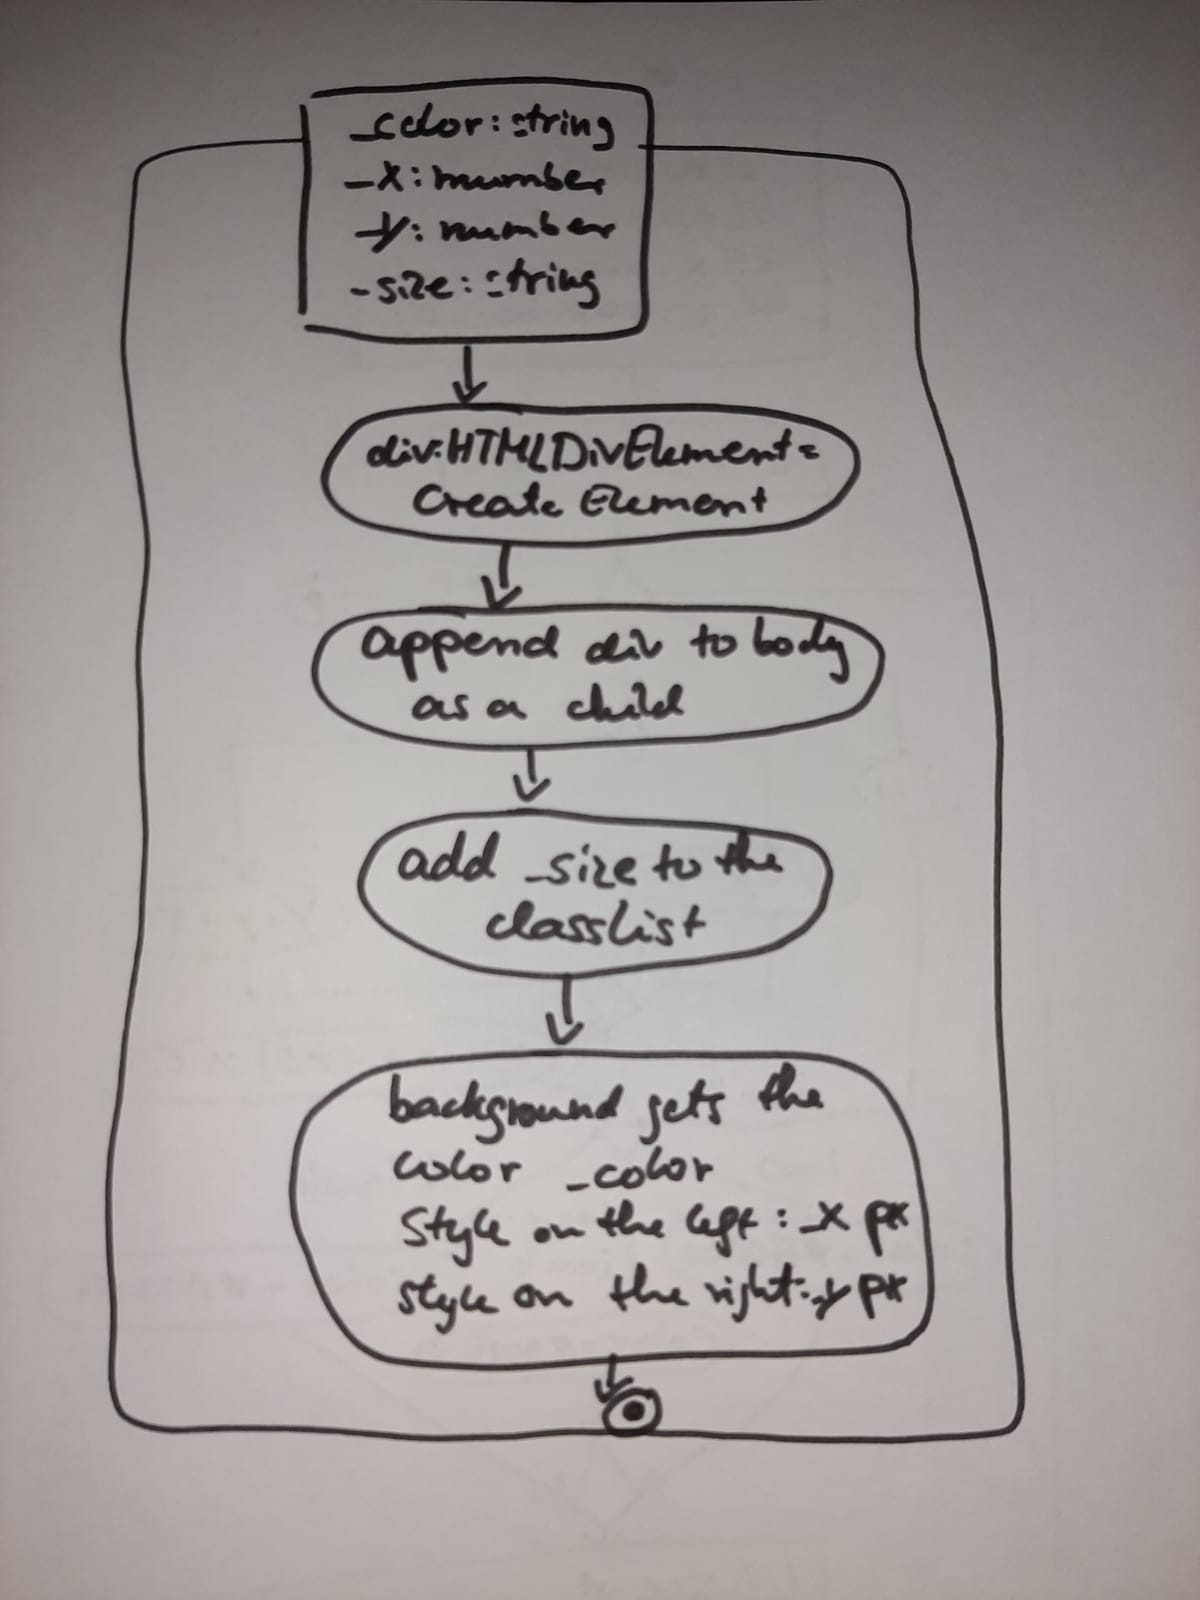 _color: string
_x: number
_y: number
_size: string
div: HTMLDivElement =
Create Element
append div to body
as a child
add _size to the
classlist
background gets the
color _color
Style on the left: _x px
style on the right: _y px